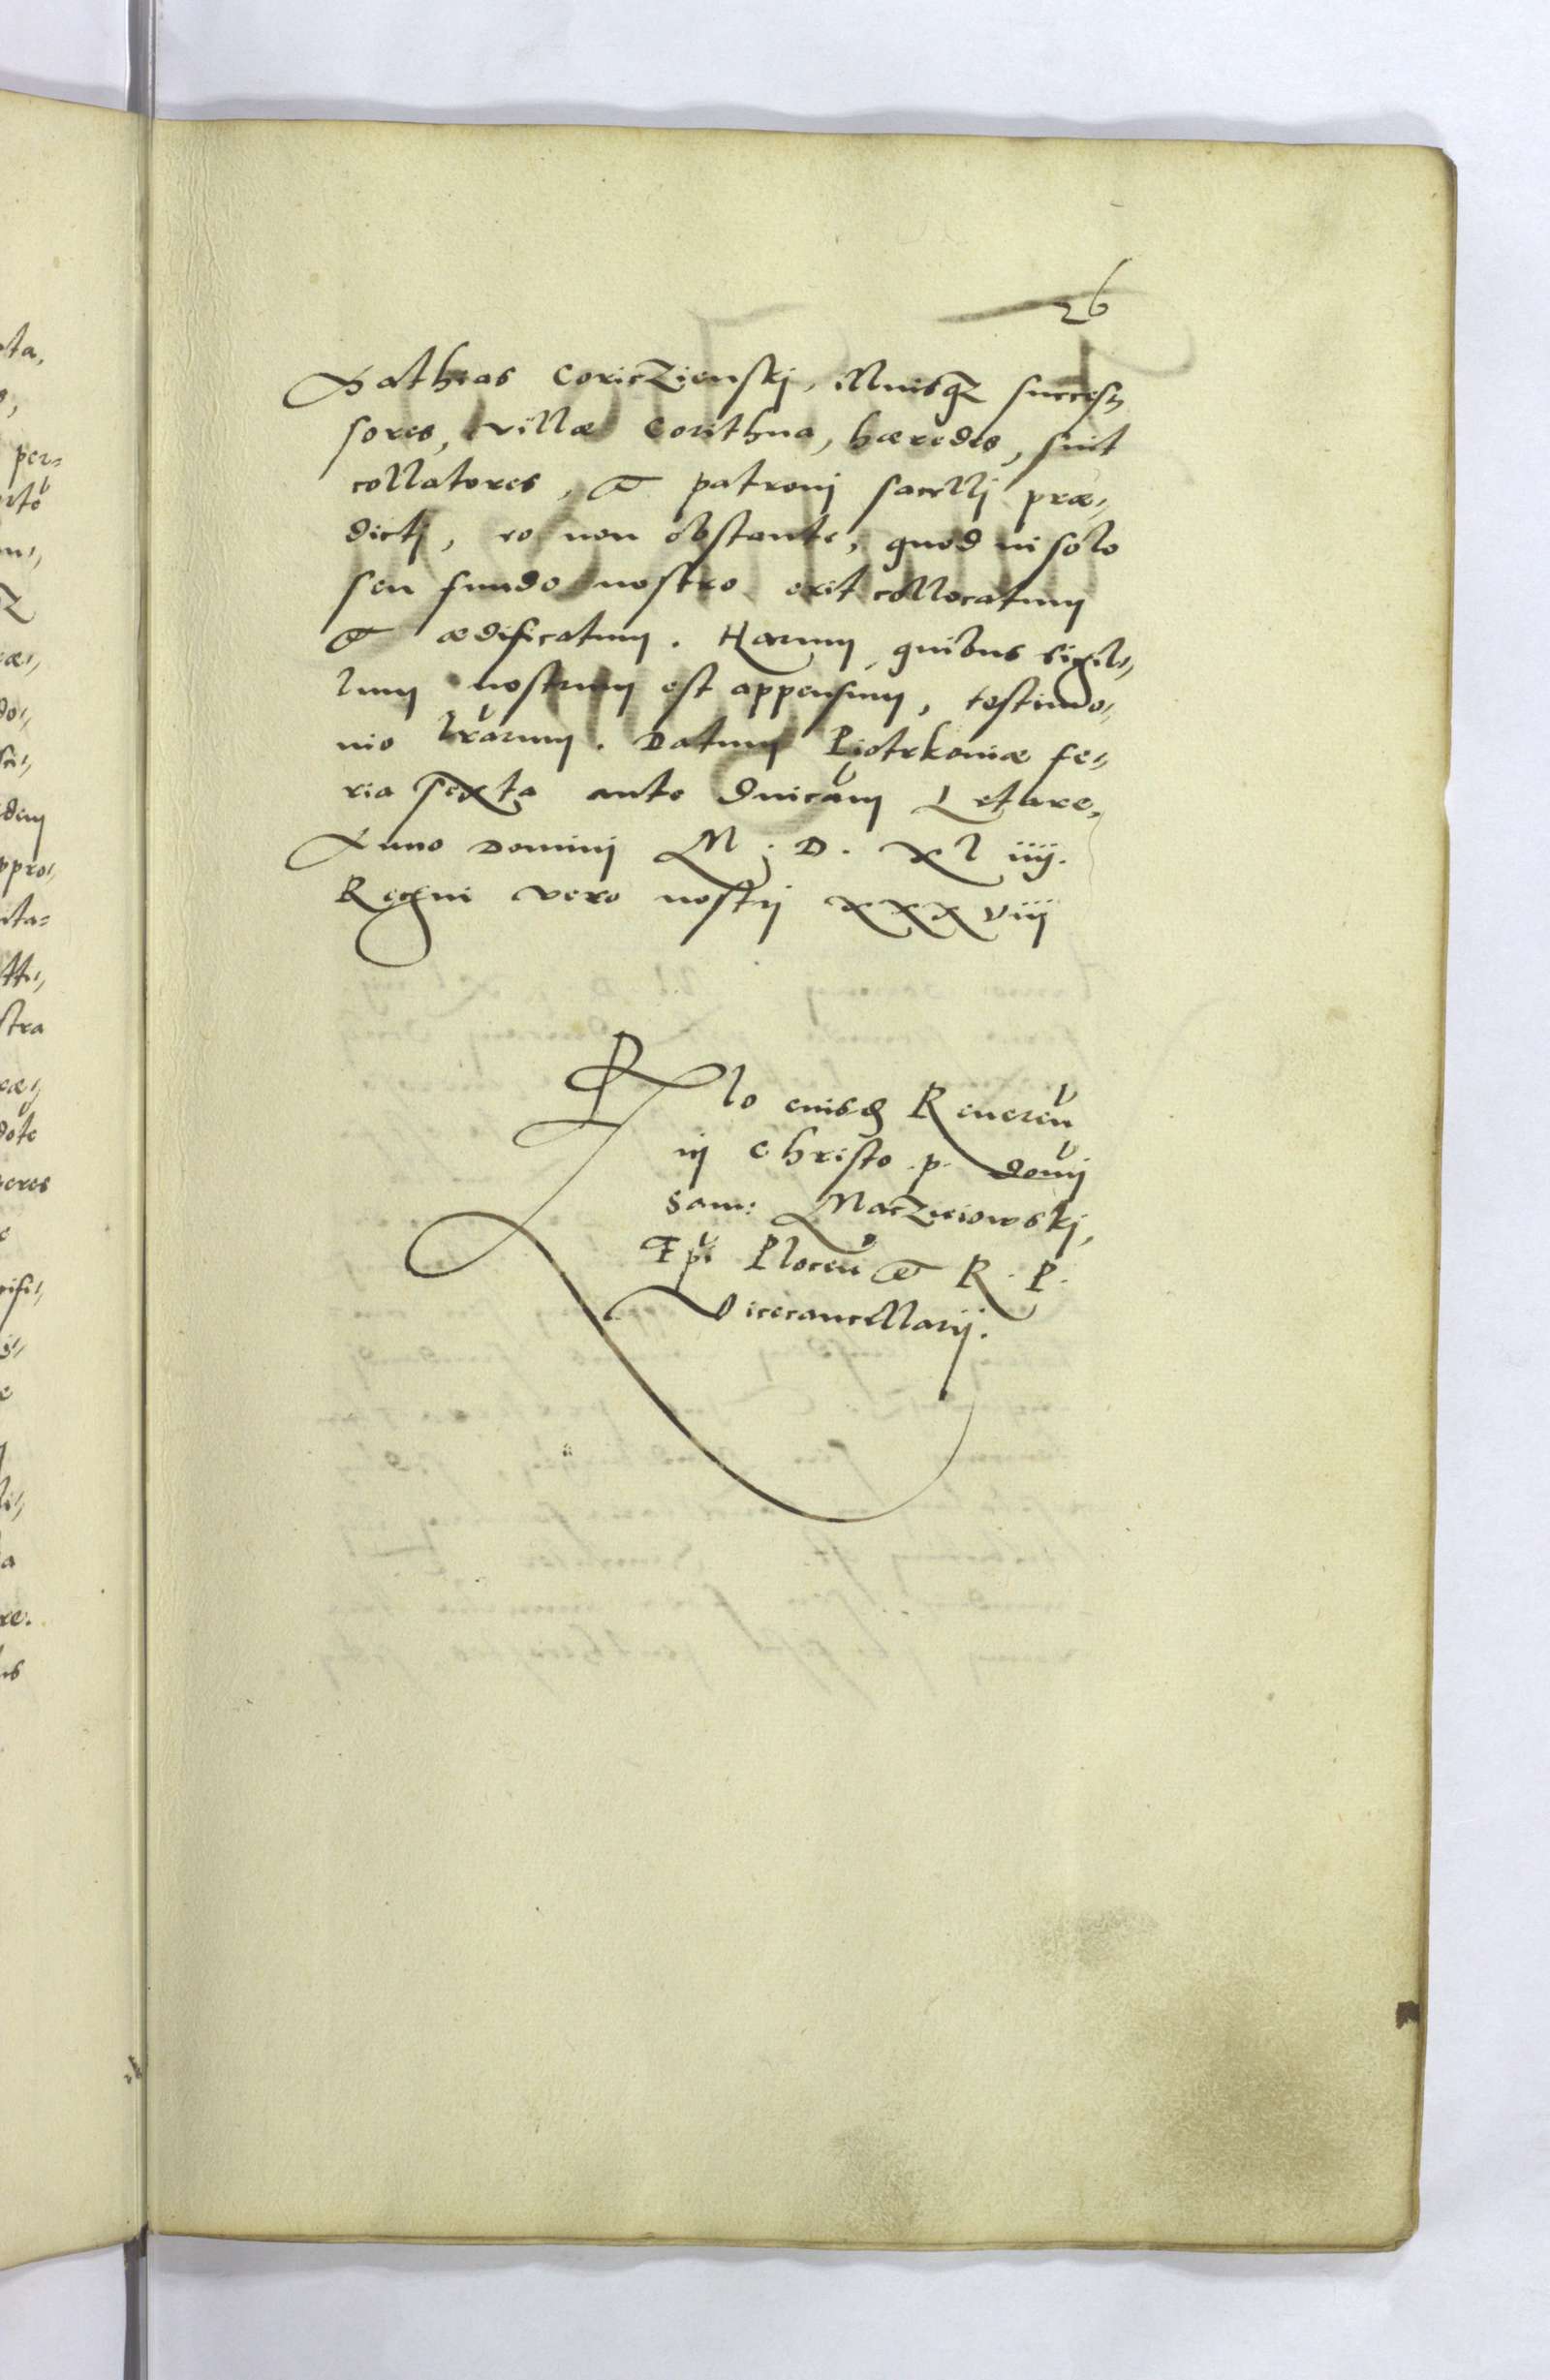 26
Mathias Coriczienskj, illiusq; succes⸗
sores, villæ Corithna, hæredes, sint
collatores, et patronj sacellj præ⸗
dictj, eo non obstante, quod in solo
seu fundo nostro erit collocatum
et ædificatum. Harum, quibus sigil⸗
lum nostrum est appensum, testimo⸗
nio lrarum. Datum Piotrkoviæ fe⸗
ria sexta ante dnicam Letare,
Anno Domini M. D. xl iiij.
Regni vero nostrj xxxviij
Rlo eiusd Reveren
in Christo p. domj
Sam: Maczieiowskj,
Epi Plocen et R. P.
Vicecancellarij.